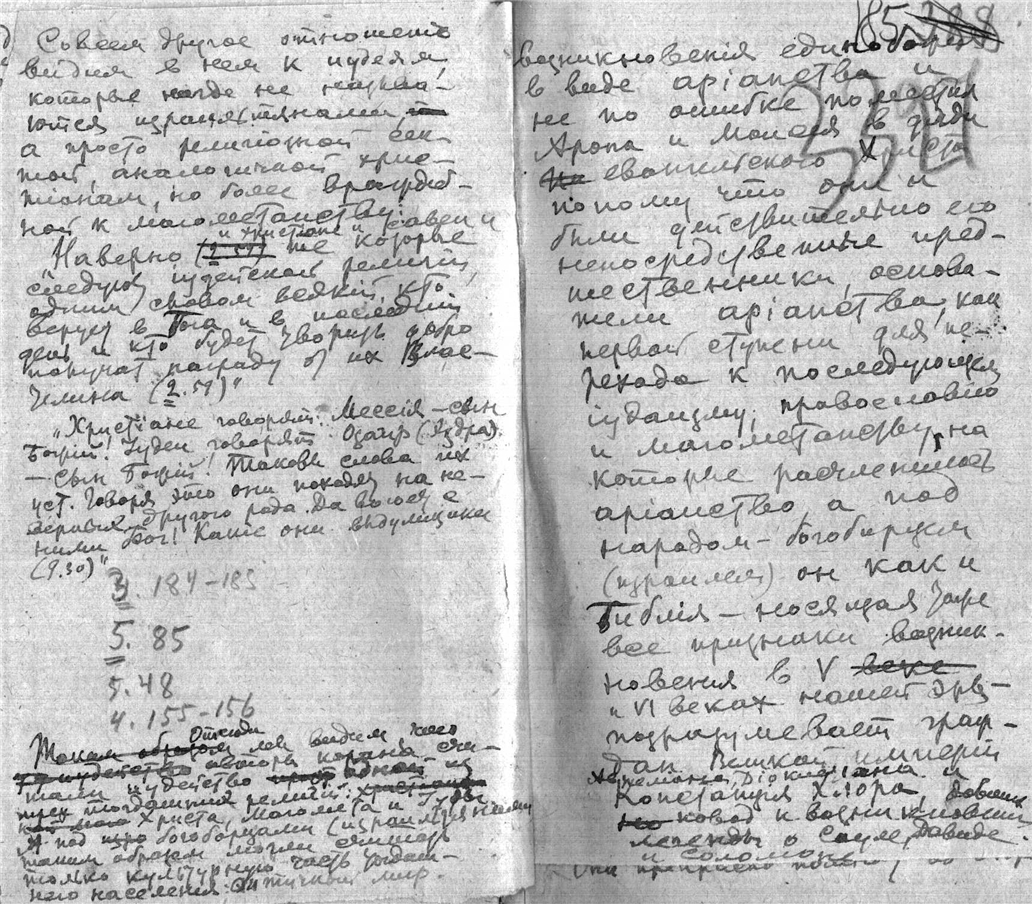 Совсем другое отношение
видим в нем к иудеям,
которые нигде не называ-
ются израильтянами,
а просто религиозной сек-
той, аналогичной хрис-
тианам, но более враждеб-
ной к магометанству:
„Наверно и христиане и савеи и
(2.59) те которые
следуют иудейской религии,
одним словом всякий, кто
верует в Бога и в последний
день и кто будет творить добро
получат награду от их Влас-
телина (2.59)“
„Христиане говорят: Мессия – сын
Божий! Иудеи говорят: Озаир (Эздра)
– сын Божий! Таковы слова их
уст. Говоря это они походят на не-
верных другого рода. Да воюет с
ними Бог! Какие они выдумщики
(9.30)“
3. 184–185
5. 85
5. 48
4. 155–156
Таким образом Отсюда мы видим, что
авторы корана счи-
тали иудейство одной из
трех тогдашних религий:
Христа, Магомета и
А под богоборцами (израильтянами)
таким образом могли
только культурную часть
него населения. Античный мир.
185 388
320
возникновения единобожия
в виде арианства и
не по ошибке поместил
Арона и Моисея в дяди
евангельского Христа
потому что они и
были действительно его
непосредственные пред-
шественники, основа-
тели арианства, как
первой ступени для пе-
рехода к последующему
иудаизму, православию
и магометанству, на
которые расчленилось
арианство, а под
народом – богоборцем
(израилем) он как и
Библия – носящая тоже
все признаки возник-
новения в V веке
– VI веках нашей эры –
подразумевает граж-
дан Великой империи
Диоклетиана и
Констанция Хлора,
повод и возникновению
легенды о Сауле, Давиде
и Соломоне